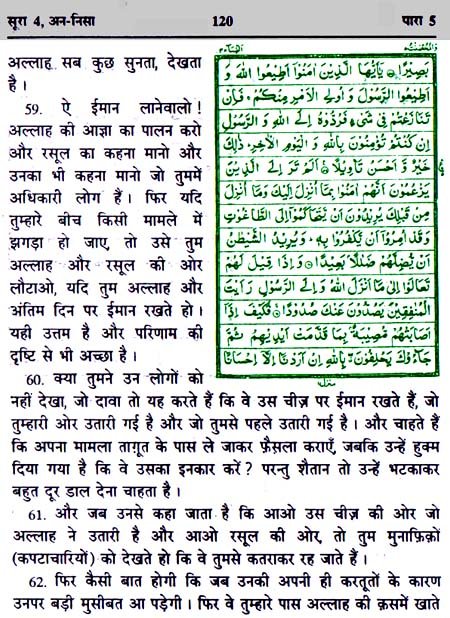 सूरा 4, अन-निसा 120 पारा 5
अल्लाह सब कुछ सुनता, देखता
है।
59. ऐ ईमान लानेवालो!
अल्लाह की आज्ञा का पालन करो
और रसूल का कहना मानो और
उनका भी कहना मानो जो तुममें
अधिकारी लोग हैं। फिर यदि
तुम्हारे बीच किसी मामले में
झगड़ा हो जाए, तो उसे तुम
अल्लाह और रसूल की ओर
लौटाओ, यदि तुम अल्लाह और
अंतिम दिन पर ईमान रखते हो।
यही उत्तम है और परिणाम की
दृष्टि से भी अच्छा है।
بَصِيْرًا۝ يٰۤاَيُّهَا الَّذِيْنَ اٰمَنُوْۤا اَطِيْعُوا اللهَ وَ
اَطِيْعُوا الرَّسُوْلَ وَ اُولِي الْاَمْرِ مِنْكُمْ ۚ فَاِنْ
تَنَازَعْتُمْ فِيْ شَيْءٍ فَرُدُّوْهُ اِلَى اللهِ وَ الرَّسُوْلِ
اِنْ كُنْتُمْ تُؤْمِنُوْنَ بِاللهِ وَ الْيَوْمِ الْاٰخِرِ ؕ ذٰلِكَ
خَيْرٌ وَّ اَحْسَنُ تَاْوِيْلًا۝ اَلَمْ تَرَ اِلَى الَّذِيْنَ
يَزْعُمُوْنَ اَنَّهُمْ اٰمَنُوْا بِمَاۤ اُنْزِلَ اِلَيْكَ وَمَاۤ اُنْزِلَ
مِنْ قَبْلِكَ يُرِيْدُوْنَ اَنْ يَّتَحَاكَمُوْۤا اِلَى الطَّاغُوْتِ
وَ قَدْ اُمِرُوْۤا اَنْ يَّكْفُرُوْا بِهٖ ؕ وَ يُرِيْدُ الشَّيْطٰنُ
اَنْ يُّضِلَّهُمْ ضَلٰلًاۢ بَعِيْدًا۝ وَ اِذَا قِيْلَ لَهُمْ
تَعَالَوْا اِلٰى مَاۤ اَنْزَلَ اللهُ وَ اِلَى الرَّسُوْلِ رَاَيْتَ
الْمُنٰفِقِيْنَ يَصُدُّوْنَ عَنْكَ صُدُوْدًا۝ فَكَيْفَ اِذَاۤ
اَصَابَتْهُمْ مُّصِيْبَةٌۢ بِمَا قَدَّمَتْ اَيْدِيْهِمْ ثُمَّ
جَآءُوْكَ يَحْلِفُوْنَ ۖ بِاللهِ اِنْ اَرَدْنَاۤ اِلَّاۤ اِحْسَانًا
60. क्या तुमने उन लोगों को
नहीं देखा, जो दावा तो यह करते हैं कि वे उस चीज़ पर ईमान रखते हैं, जो
तुम्हारी ओर उतारी गई है और जो तुमसे पहले उतारी गई है। और चाहते हैं
कि अपना मामला ताग़ूत के पास ले जाकर फ़ैसला कराएँ, जबकि उन्हें हुक्म
दिया गया है कि वे उसका इनकार करें? परन्तु शैतान तो उन्हें भटकाकर
बहुत दूर डाल देना चाहता है।
61. और जब उनसे कहा जाता है कि आओ उस चीज़ की ओर जो
अल्लाह ने उतारी है और आओ रसूल की ओर, तो तुम मुनाफ़िक़ों
(कपटाचारियों) को देखते हो कि वे तुमसे कतराकर रह जाते हैं।
62. फिर कैसी बात होगी कि जब उनकी अपनी ही करतूतों के कारण
उनपर बड़ी मुसीबत आ पड़ेगी। फिर वे तुम्हारे पास अल्लाह की क़समें खाते